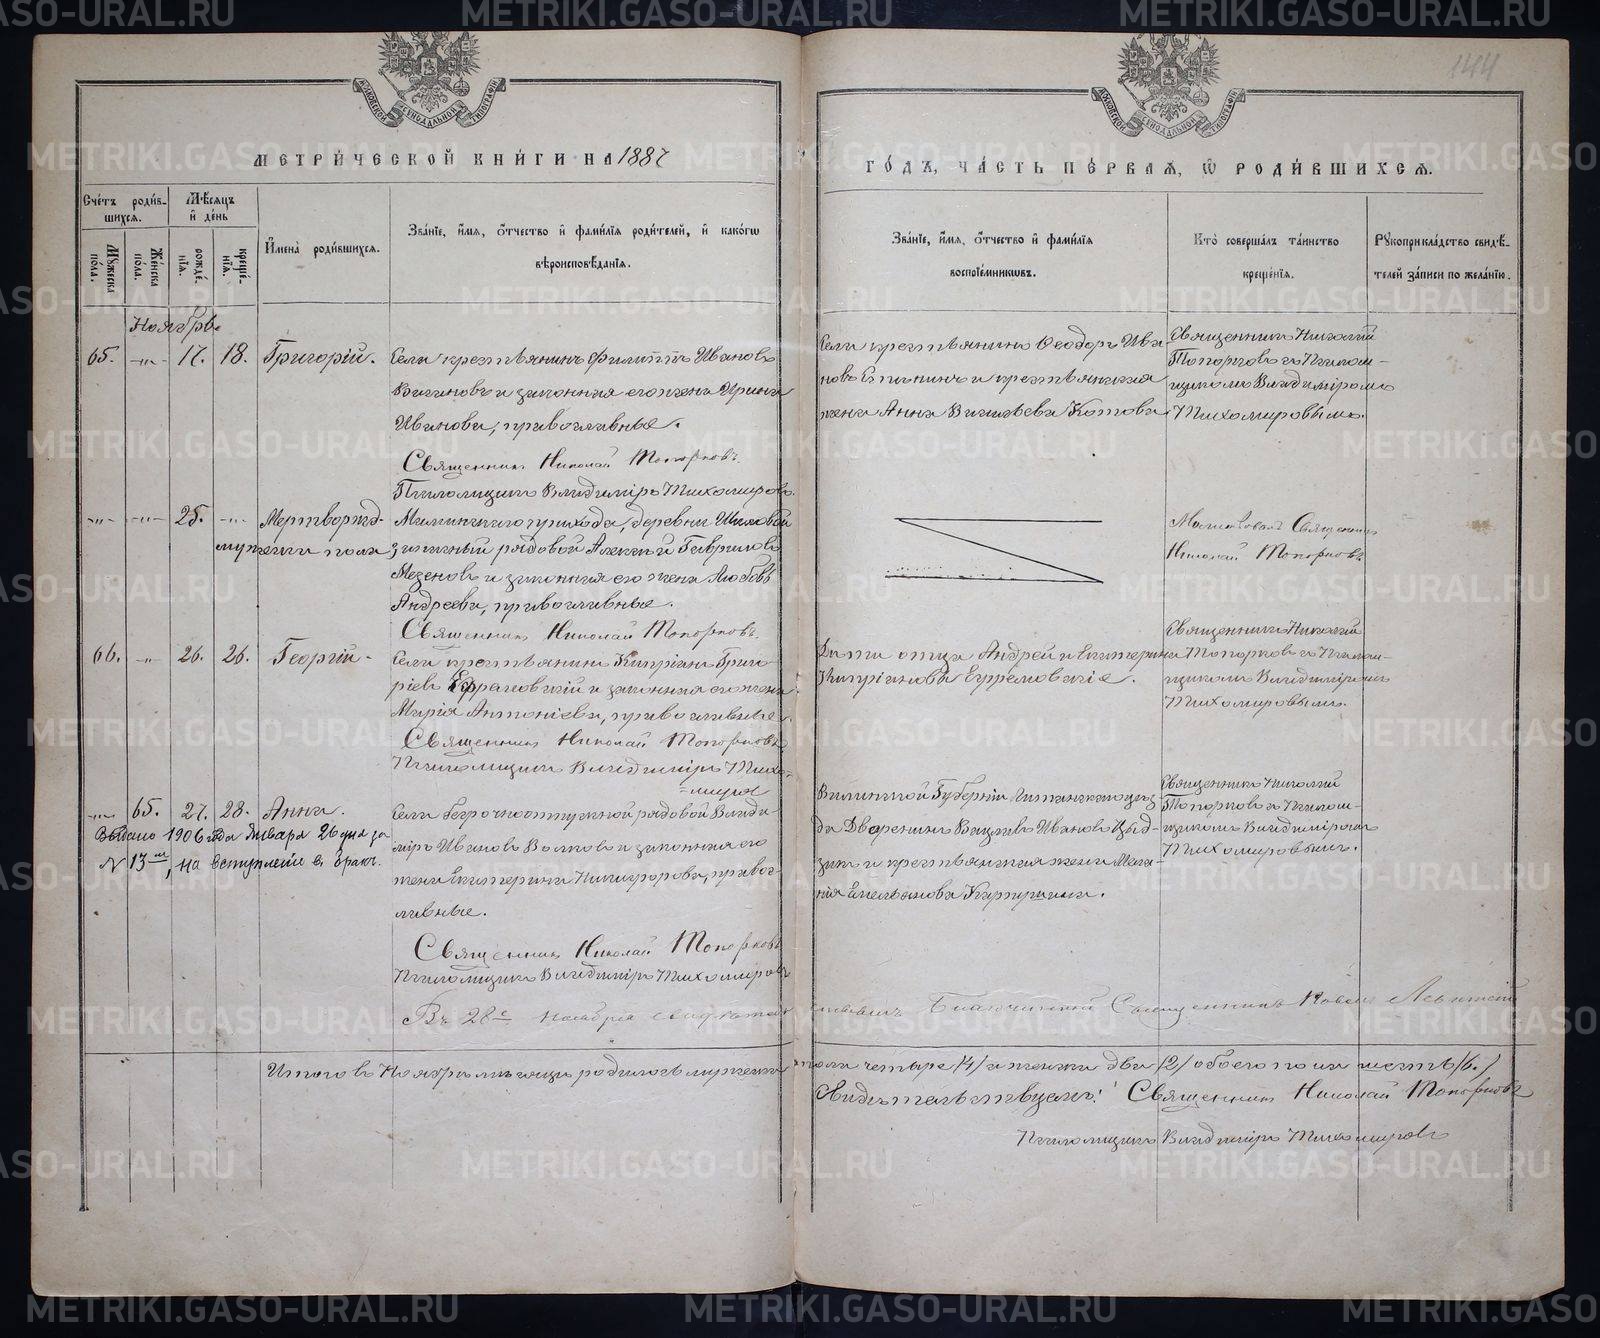 144
МОСКОВСКОЙ СѴНОДАЛЬНОЙ ТИПОГРАФІИ
МОСКОВСКОЙ СѴНОДАЛЬНОЙ ТИПОГРАФІИ
МЕТРИ́ЧЕСКОЙ КНИ́ГИ НА 1887
ГО́ДЪ, ЧА́СТЬ ПЕ́РВАѦ, Ѽ РОДИ́ВШИХСѦ.
Сче́тъ роди́вшихся.
Мꙋ́жеска по́ла.
Же́нска по́ла.
Мѣ́сяцъ и҆ де́нь
рожде́нїя.
креще́нїя.
И҆мена̀ роди́вшихся.
Зва́нїе, и҆́мя, ѻ҆́тчество и҆ фами́лїя роди́телей, и҆ како́гѡ вѣроисповѣ́данїя.
Зва́нїе, и҆́мя, ѻ҆́тчество и҆ фами́лїя воспрїе́мникѡвъ.
Кто̀ соверша́лъ та́инство креще́нїя.
Рꙋкоприкла́дство свидѣ́телей за́писи по жела́нїю.
Ноябрь
65. -„- 17. 18. Григорій.
Села крестьянинъ Филиппъ Ивановъ
и законная его жена Ирина
Иванова, православные.
Священникъ Николай Топорковъ
Псаломщикъ Владиміръ Тихомировъ.
Села крестьянинъ Ѳеодоръ Ива-
новъ и крестьянская
жена Анна Котова.
Священникъ Николай
Топорковъ съ Псалом-
щикомъ Владиміромъ
Тихомировымъ.
-„- -„- 25. -„- Мертворожд-
мужескаго пола
прихода, деревни
рядовой Алексѣй Гавриловъ
Мезеновъ и законная его жена Любовь
Андреева, православные.
Священникъ Николай Топорковъ.
Священникъ
Николай Топорковъ
66. -„- 26. 26. Георгій -
Села крестьянинъ Кипріанъ Григо-
ріевъ и законная его жена
Марія Антоніева, православные
Священникъ Николай Топорковъ
Псаломщикъ Владиміръ Тихо-
=мировъ
Дѣти отца Андрей и Екатерина
Кипріановы
Священникъ Николай
Топорковъ съ Псалом-
щикомъ Владиміромъ
Тихомировымъ.
-„- 65. 27. 28. Анна.
Выдано 1906 года Января 26 дня за
№ 13, на вступленіе въ бракъ.
Села безсрочноотпускной рядовой Влади-
міръ Ивановъ Волковъ и законная его
жена Екатерина Никифорова, правос-
лавные.
Священникъ Николай Топорковъ
Псаломщикъ Владиміръ Тихомировъ
Виленской Губерніи
Дворянинъ Ивановъ
и крестьянская жена Мела-
нія Емельянова
Священникъ Николай
Топорковъ съ Псалом-
щикомъ Владиміромъ
Тихомировымъ.
Въ 28е ноября свидѣтельствовалъ Благочинный Священникъ
Итого въ Ноябрѣ мѣсяцѣ родилось мужеска пола четыре /4/ а женска два /2/ обоего пола шесть /6./
Свидѣтельствуемъ: Священникъ Николай Топорковъ
Псаломщикъ Владиміръ Тихомировъ
METRIKI.GASO-URAL.RU